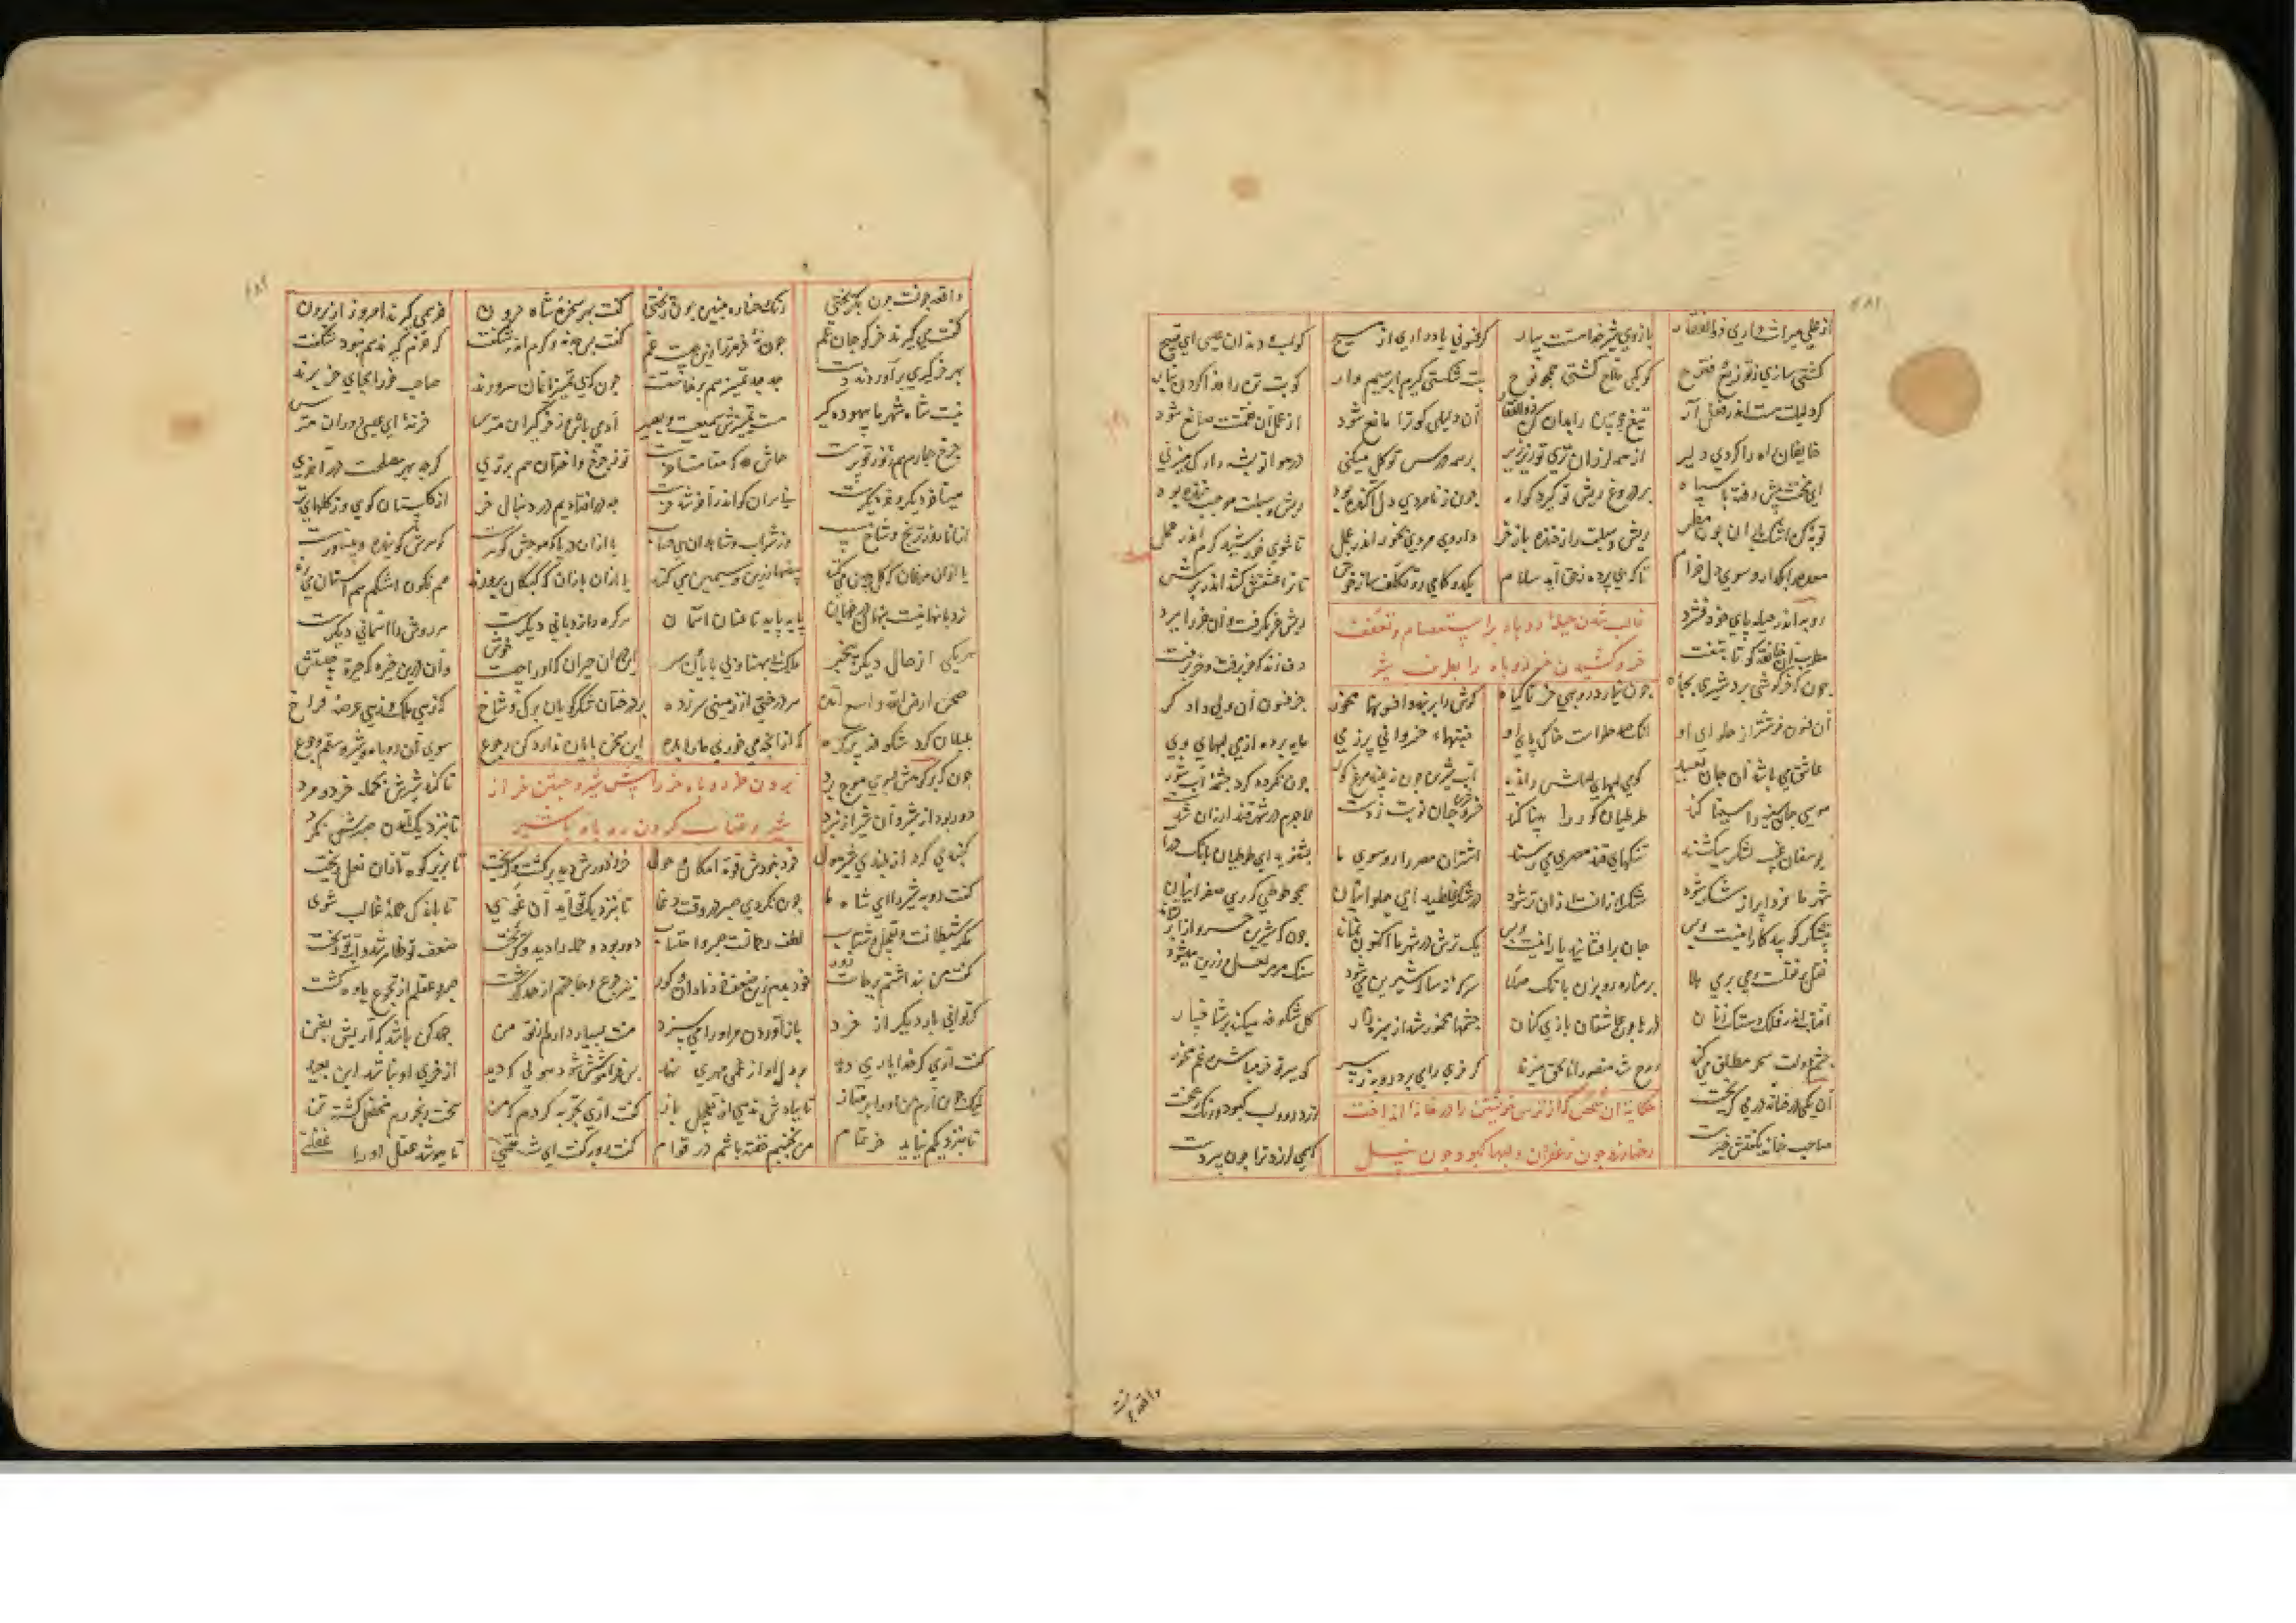 از علی میراث داری ذوالفقار بازوی شیر خدا هستت بیار کر فسونی یاد داری از مسیح کو لب و دندان عیسی ای قبیح
کشتی سازی ز توزیع و فتوح کو یکی ملاح کشتی همچو نوح بت شکستی کیرم ابرهیم وار کو بت تن را فدا کردن بنار
کر دلیلت هست اندر فعل آر تیغ چوبین را بدان کن ذوالفقار آن دلیلی کو ترا مانع شود از عمل آن نقمت صانع شود
خایفان راه را کردی دلیر از همه لرزان تری تو زیر زیر بر همه درس توکل میکنی در هوا تو پشه را رک میزنی
ای مخنث پیش رفته با سپاه بر دروغ ریش تو کیرت کواه چون ز نامردی دل آکنده بود ریش و سبلت موجب خنده بود
توبه کن اشک باران چون مطر ریش و سبلت را ز خنده باز خر داروی مردی بخور اندر عمل تا شوی خورشید کرم اندر حمل
معده را بگذار و سوی دل خرام تا که بی پرده ز حق آید سلام یکدو کامی رو تکلف ساز خوش تا ترا عشقش کشد اندر برش
غالب شدن حیله روباه بر استعصام و تعفف
خر و کشیدن خر روباه را بطرف شیر
روبه اندر حیله پای خود فشرد ریش خر بکرفت و آن خر را ببرد
مطرب آن خانقه کو تا بتفت دف زند که خر برفت و خر برفت
چون که خرکوشی برد شیری بچاه چون نیارد روبهی خر تا کیاه کوش را بربند و افسونها مخور جز فسون آن ولی دادکر
آن فسون خوشتر از حلوای او آنک صد حلواست خاک پای او خنبهاء خسروانی پر ز می مایه برده از می لبهای وی
عاشق می باشد آن جان بعید کوی لبهای لعلش را ندید آب شیرین چون نبیند مرغ کور چون نکردد کرد چشمه آب شور
موسی جان سینه را سینا کند طوطیان کور را بینا کند خسرو شیرین جان نوبت زدست لاجرم در شهر قند ارزان شدست
یوسفان غیب لشکر میکشند تنکهای قند مصری میرسند اشتران مصر را رو سوی ما بشنوید ای طوطیان بانک درا
شهر ما فردا پر از شکر شود شکر ارزانست ارزان تر شود در شکر غلطید ای حلواییان همچو طوطی کوری صفراییان
نیشکر کوبید کار اینست و بس جان برافشانید یار اینست و بس یک ترش در شهر ما اکنون نماند چون که شیرین خسروانرا بر نشاند
نقل بر نقلست و می بر می هلا بر مناره رو بزن بانک صلا سرکه نه ساله شیرین میشود سنک مرمر لعل و زرین میشود
افتاب اندر فلک دستک زنان ذره ها چون عاشقان بازی کنان چشمها مخمور شد از سبزه زار کل شکوفه میکند بر شاخسار
چشم دولت سحر مطلق می کند روح شد منصور انا الحق میزند کر خری را می برد روبه ز سر کو ببر تو خر مباش و غم مخور
حکایة آن شخص که از ترس خویشتن را در خانه انداخت
رخها زرد چون زعفران و لبها کبود چون نیل
آن یکی در خانه در می کریخت زرد رو و لب کبود و رنک ریخت
صاحب خانه بکفتش خیر هست که همی لرزد ترا چون پیر دست
واقعه چونست
واقعه چونست چون بکریختی رنک رخساره چنین چون ریختی کفت بهر سخره شاه حرون خر همی کیرند امروز از برون
کفت می کیرند خر کو جان عم چون نه خر رو ترا زین چیست غم کفت بس جدند و کرم اندر کرفت کر خرم کیرند هم نبود شکفت
بهر خرکیری برآوردند دست جد جد تمییز هم برخاستست چون که بی تمییزیانمان سرورند صاحب خر را بجای خر برند
نیست شاه شهر ما بیهوده کیر هست تمییزش سمیعست و بصیر آدمی باش و ز خر کیران مترس خر نه ای عیسی دوران مترس
چرخ چارم هم ز نور تو پرست حاش لله که مقامت آخرست تو ز چرخ و اختران هم برتری کرچه بهر مصلحت در آخری
میر آخر دیکر و خر دیکرست نه هر آن کو اندر آخر شد خرست چه در افتادیم در دنبال خر از کلستان کوی و از کلهای تر
از انار و از ترنج و شاخ سیب وز شراب و شاهدان بی حساب یا از آن دریا که موجش کوهرست کوهرش کوینده و بیناورست
یا از آن مرغان که کل چین می کنند بیضها زرین و سیمین می کنند یا از آن بازان که کبکان پرورند هم نکون اشکم هم استان می پرند
نردبانهاییست پنهان در جهان پایه پایه تا عنان اسمان هر کره را نردبانی دیکرست هر روش را اسمانی دیکرست
هر یکی از حال دیکر بیخبر ملک با پهنا و بی پایان و سر این در آن حیران که او از چیست خوش وآن درین خیره که حیرت چیستش
صحن ارض الله واسع آمده هر درختی از زمینی سر زده بر درختان شکر کویان برک و شاخ که زهی ملک و زهی عرصه فراخ
بلبلان کرد شکوفه پر کره که از انچه می خوری ما را بده این سخن پایان ندارد کن رجوع سوی آن روباه و شیر و سقم و جوع
بردن روباه خر را پیش شیر و جستن خر از
شیر و عتاب کردن روباه با شیر
چون که بر کوهش بسوی مرج برد تا کند شیرش بحمله خرد و مرد
دور بود از شیر و آن شیر از نبرد تا بنزدیک آمدن صبرش نکرد
کنبدی کرد از بلندی شیر هول خود نبودش قوة امکان حول خر ز دورش دید و برکشت و کریخت تا بزیر کوه تازان نعل ریخت
کفت روبه شیر را ای شاه ما چون نکردی صبر در وقت وغا تا بنزدیک تو آید آن غوی تا باندک حمله غالب شوی
مکر شیطانست تعجیل و شتاب لطف رحمانست صبر و احتساب دور بود و حمله را دید و کریخت ضعف تو ظاهر شد و آب تو ریخت
کفت من پنداشتم بر جاست زور خود بدم زین ضعف خود نادان و کور نیز جوع و حاجتم از حد کذشت صبر و عقلم از تجوع یاوه کشت
کر توانی بار دیکر از خرد باز آوردن مر او را می سزد منت بسیار دارم از تو من جهد کن باشد که آریش بفن
کفت آری کر خدا یاری دهد بر دل او از عمی مهری نهد پس فراموشش شود هولی که دید از خری او نباشد این بعید
لیک چون آرم من او را بر متاز تا ببادش ندهی از تعجیل باز کفت آری تجربه کردم که من سخت رنجورم مخلخل کشته تن
تا بنزدیکم نیاید خر تمام من نجنبم خفته باشم در قوام کفت روبه کفت ای شه همتی تا بپوشد عقل او را غفلتی